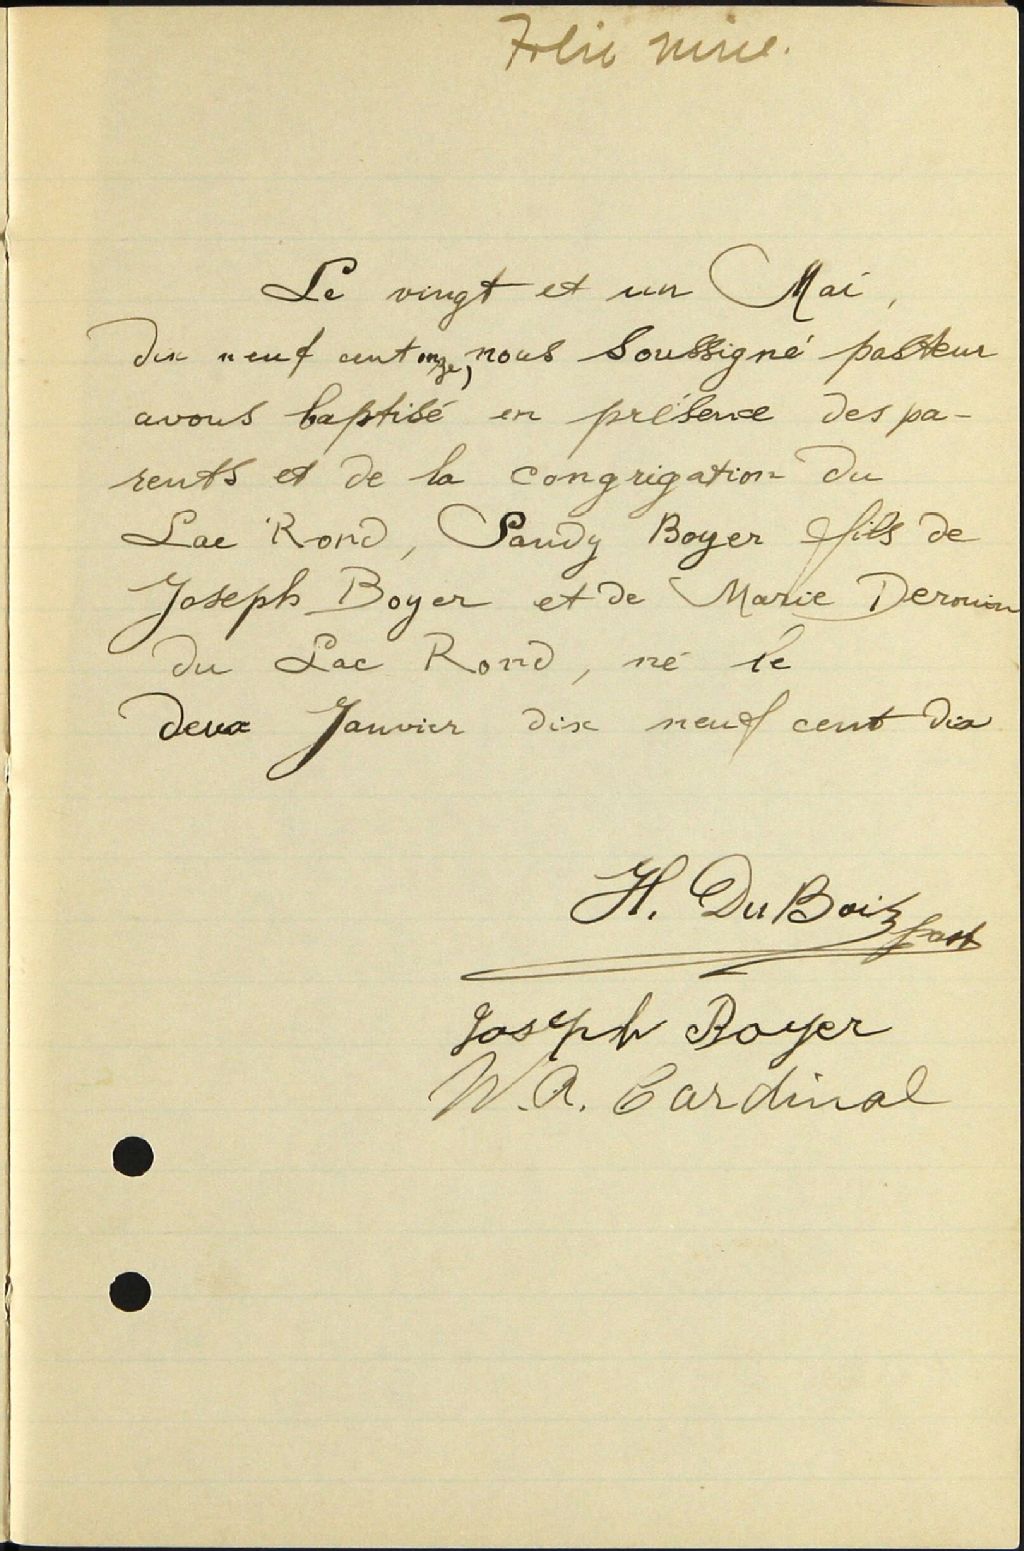 Folio nine.
Le vingt et un Mai,
dix neuf cent onze, nous soussigné pasteur
avons baptisé en présence des pa-
rents et de la congrigation du
Lac Rond, Sandy Boyer fils de
Joseph Boyer et de Marie Derouin
du Lac Rond, né le
deux Janvier dix neuf cent dix
H. DuBois past
Joseph Boyer
W. A. Cardinal